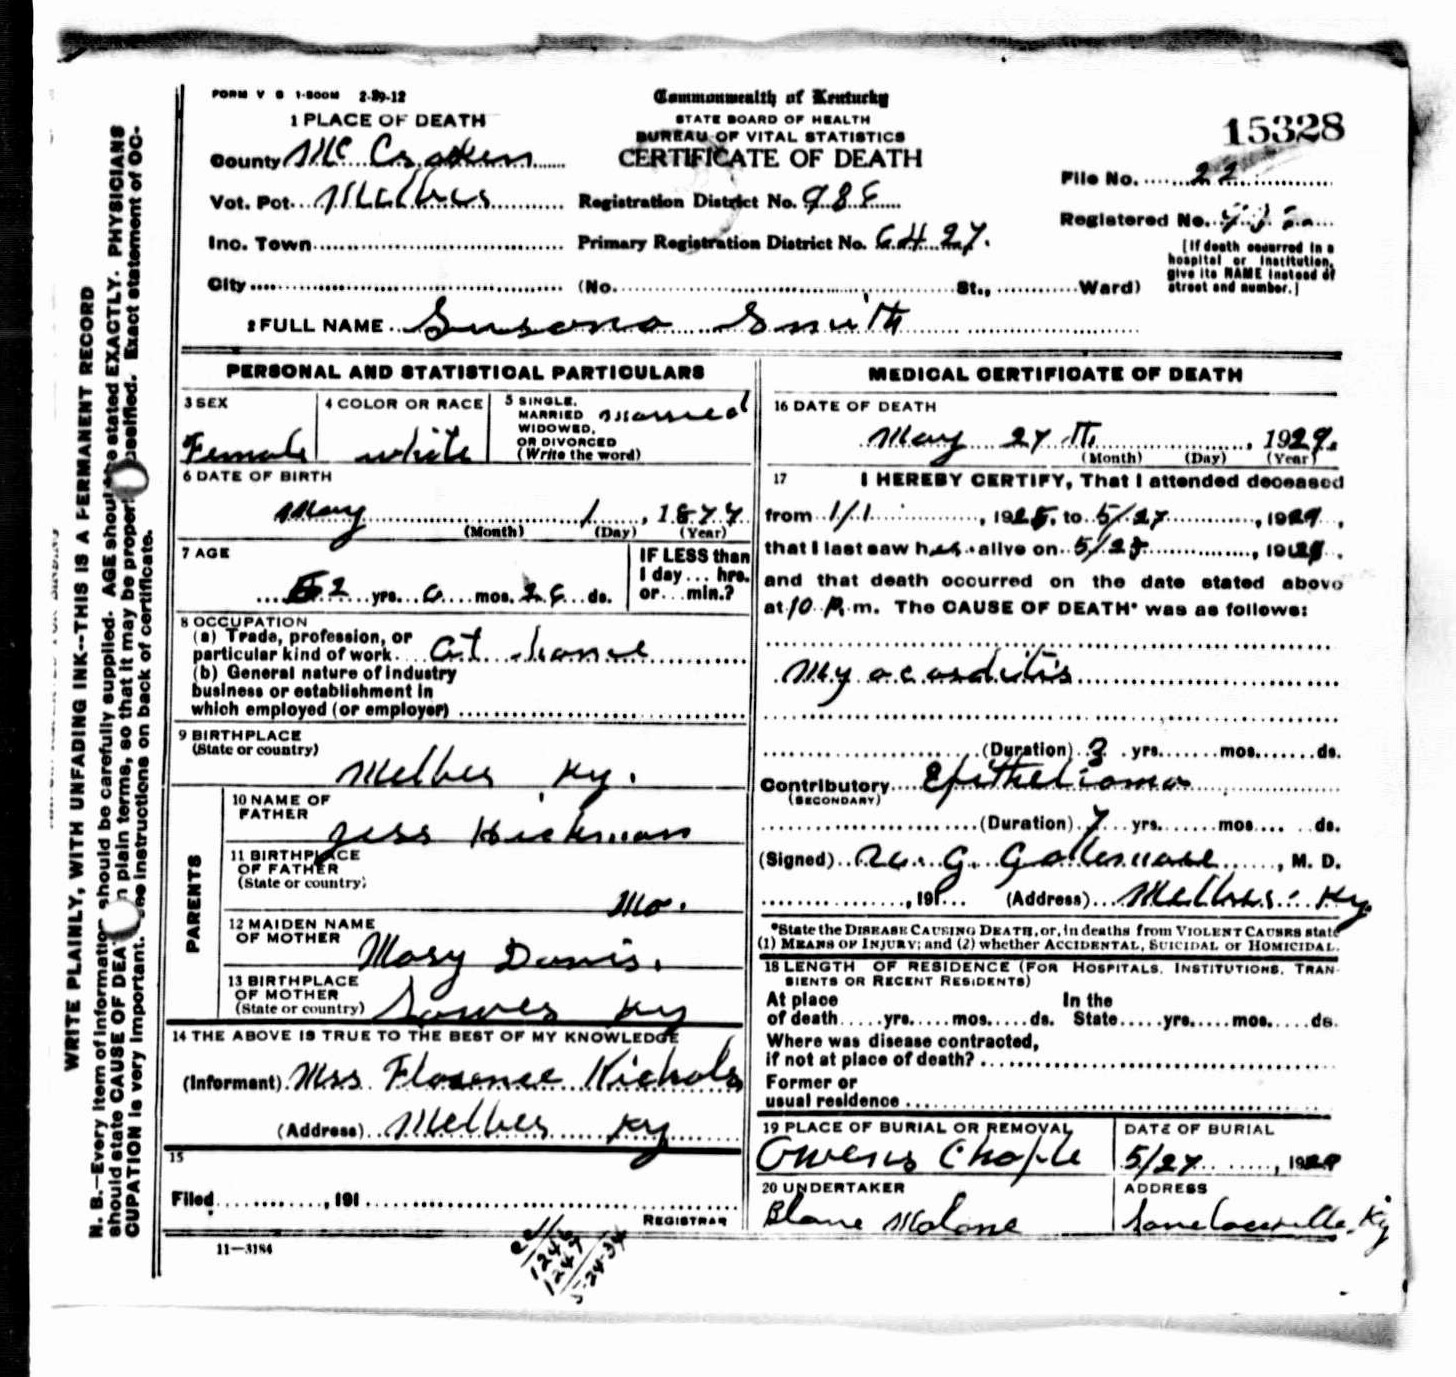 FORM V S 1-500M 2-29-12
Commonwealth of Kentucky
STATE BOARD OF HEALTH
BUREAU OF VITAL STATISTICS
CERTIFICATE OF DEATH
15328
1 PLACE OF DEATH
County McCracken
Vot. Pct. Melber
Inc. Town
City (No. St., Ward)
Registration District No.
Primary Registration District No. 6427.
File No. 22
Registered No.
[If death occurred in a
hospital or institution,
give its NAME instead of
street and number.]
2 FULL NAME Susana Smith
PERSONAL AND STATISTICAL PARTICULARS
3 SEX
Female
4 COLOR OR RACE
white
5 SINGLE,
MARRIED
WIDOWED,
OR DIVORCED
(Write the word)
married
6 DATE OF BIRTH
May 1, 1877
(Month) (Day) (Year)
7 AGE
52 yrs. 0 mos. 26 ds.
IF LESS than
1 day ... hrs.
or ... min.?
8 OCCUPATION
(a) Trade, profession, or
particular kind of work. at home
(b) General nature of industry
business or establishment in
which employed (or employer)
9 BIRTHPLACE
(State or country)
Melber Ky.
PARENTS
10 NAME OF
FATHER
Jess Hickman
11 BIRTHPLACE
OF FATHER
(State or country)
Mo.
12 MAIDEN NAME
OF MOTHER
Mary Davis.
13 BIRTHPLACE
OF MOTHER
(State or country)
Lowes Ky
14 THE ABOVE IS TRUE TO THE BEST OF MY KNOWLEDGE
(Informant) Mrs Florence Nichols
(Address) Melber Ky
15
Filed , 191
REGISTRAR
11—3184
1246
1247
5-24-34
MEDICAL CERTIFICATE OF DEATH
16 DATE OF DEATH
May 27th, 1929.
(Month) (Day) (Year)
17 I HEREBY CERTIFY, That I attended deceased
from 1/1, 192 , to 5/27, 1929,
that I last saw her alive on 5/25, 1929,
and that death occurred on the date stated above
at 10 P. m. The CAUSE OF DEATH* was as follows:
Myocarditis
(Duration) 3 yrs. mos. ds.
Contributory Epithelioma
(SECONDARY)
(Duration) 7 yrs. mos. ds.
(Signed) G. , M. D.
, 191 (Address) Melber Ky
*State the DISEASE CAUSING DEATH, or, in deaths from VIOLENT CAUSES state
(1) MEANS OF INJURY; and (2) whether ACCIDENTAL, SUICIDAL or HOMICIDAL.
18 LENGTH OF RESIDENCE (FOR HOSPITALS, INSTITUTIONS, TRAN-
SIENTS OR RECENT RESIDENTS)
At place In the
of death yrs. mos. ds. State yrs. mos. ds.
Where was disease contracted,
if not at place of death?
Former or
usual residence
19 PLACE OF BURIAL OR REMOVAL
Owens Chaple
DATE OF BURIAL
5/27, 1929
20 UNDERTAKER
Blane Malone
ADDRESS
Ky
WRITE PLAINLY, WITH UNFADING INK--THIS IS A PERMANENT RECORD
N. B.—Every item of information should be carefully supplied. AGE should be stated EXACTLY. PHYSICIANS
should state CAUSE OF DEATH in plain terms, so that it may be properly classified. Exact statement of OC-
CUPATION is very important. See instructions on back of certificate.